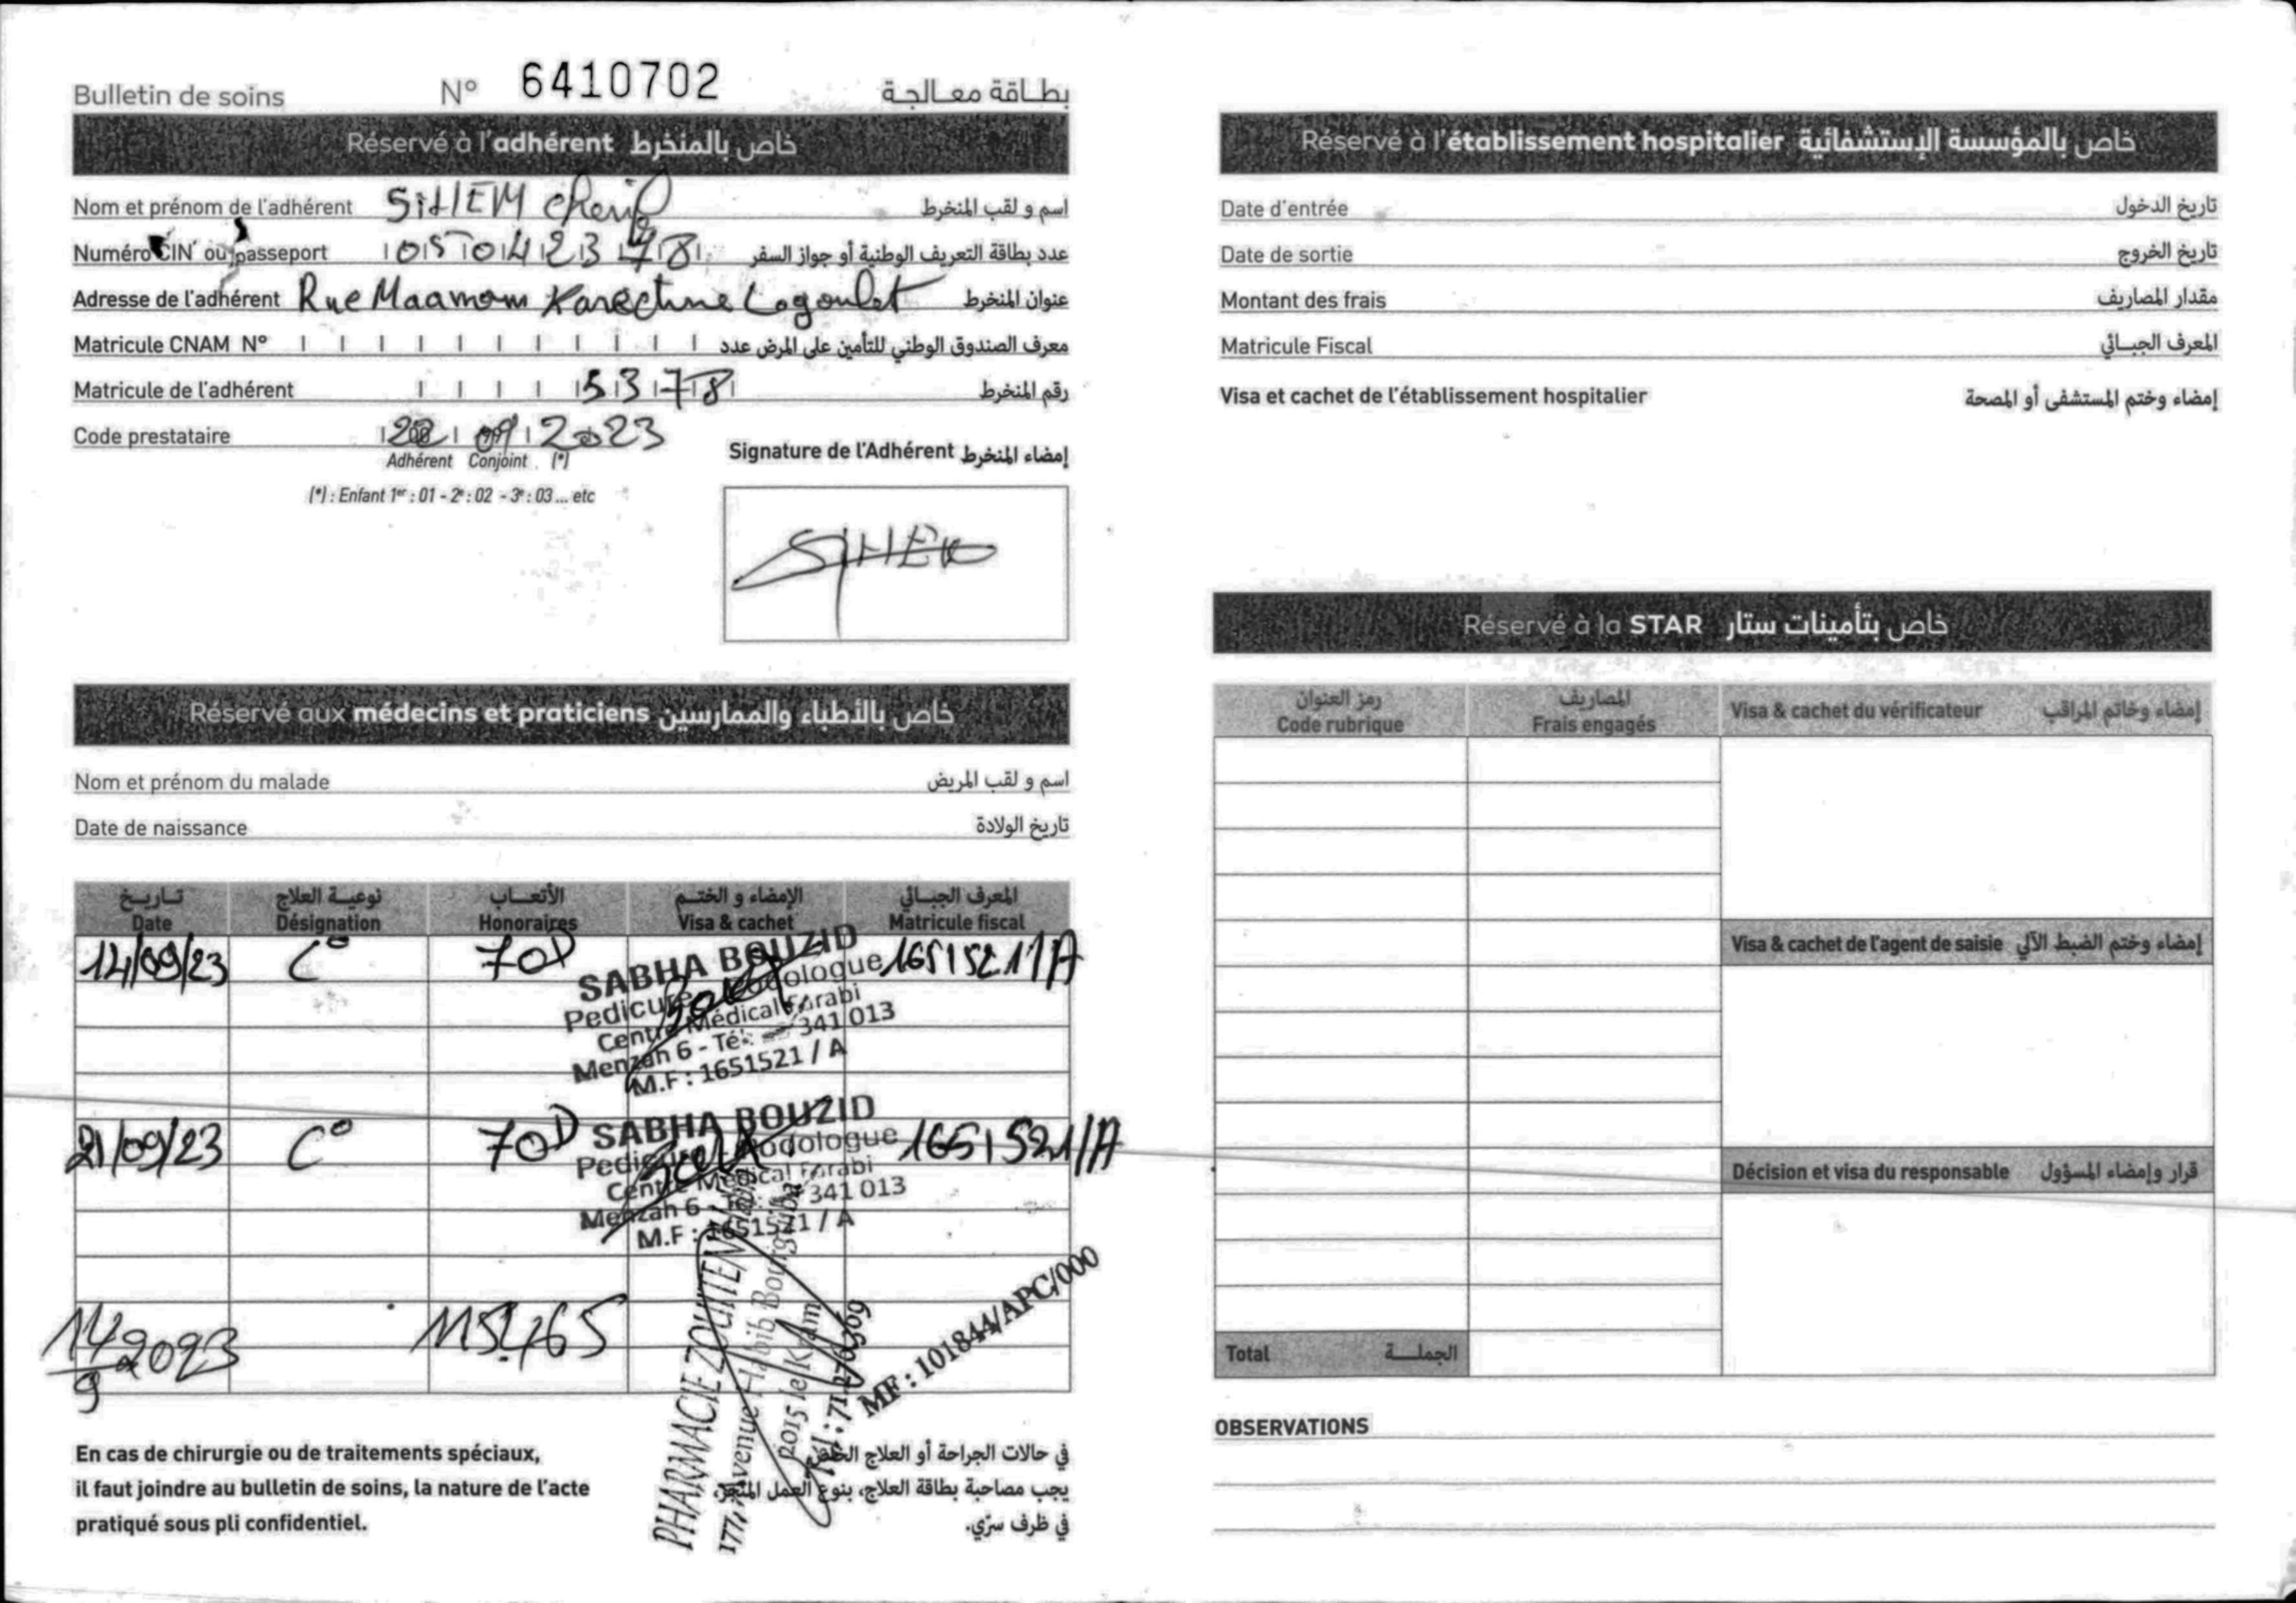 Bulletin de soins N° 6410702 بطاقة معالجة
Réservé à l'adhérent خاص بالمنخرط
Nom et prénom de l'adhérent SiHEM cherif اسم و لقب المنخرط
Numéro CIN ou passeport عدد بطاقة التعريف الوطنية أو جواز السفر
Adresse de l'adhérent Rue Maamoun عنوان المنخرط
Matricule CNAM N° معرف الصندوق الوطني للتأمين على المرض عدد
Matricule de l'adhérent 5378 رقم المنخرط
Code prestataire 22 09 2023
Adhérent Conjoint (*)
(*) : Enfant 1er : 01 - 2e : 02 - 3e : 03 ... etc
Signature de l'Adhérent إمضاء المنخرط
SIHEM
Réservé aux médecins et praticiens خاص بالأطباء والممارسين
Nom et prénom du malade اسم و لقب المريض
Date de naissance تاريخ الولادة
تاريخ نوعية العلاج الأتعاب الإمضاء و الختم المعرف الجبائي
Date Désignation Honoraires Visa & cachet Matricule fiscal
14/09/23 C° 70D 1651521/A
SABHA BOUZID
Pedicure Podologue
Centre Médical Farabi
Menzah 6 - Tél: 341 013
M.F : 1651521 / A
21/09/23 C° 70D 1651521/A
SABHA BOUZID
Pedicure Podologue
Centre Médical Farabi
Menzah 6 341 013
M.F : 1651521 / A
14/9 2023 115.465
PHARMACIE ZOUITEN
177, Avenue Habib Bourguiba
2015 le Kram
Tél : 71 276 309
MF : 101844/APC/000
En cas de chirurgie ou de traitements spéciaux,
il faut joindre au bulletin de soins, la nature de l'acte
pratiqué sous pli confidentiel.
في حالات الجراحة أو العلاج الخاص
يجب مصاحبة بطاقة العلاج، بنوع العمل المنجز،
في ظرف سرّي.
Réservé à l'établissement hospitalier خاص بالمؤسسة الإستشفائية
Date d'entrée تاريخ الدخول
Date de sortie تاريخ الخروج
Montant des frais مقدار المصاريف
Matricule Fiscal المعرف الجبائي
Visa et cachet de l'établissement hospitalier إمضاء وختم المستشفى أو المصحة
Réservé à la STAR خاص بتأمينات ستار
رمز العنوان المصاريف
Code rubrique Frais engagés Visa & cachet du vérificateur إمضاء وخاتم المراقب
Visa & cachet de l'agent de saisie إمضاء وختم الضبط الآلي
Décision et visa du responsable قرار وإمضاء المسؤول
Total الجملة
OBSERVATIONS